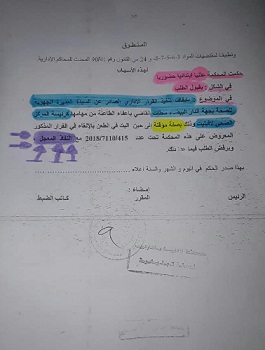 المنطوق
وتطبيقا لمقتضيات المواد 2-4-5-7- و 24 من القانون رقم 41.90 المحدث للمحاكم الإدارية
لهذه الأسباب
حكمت المحكمة علنيا ابتدائيا حضوريا
في الشكل: بقبول الطلب
في الموضوع: بإيقاف تنفيذ القرار الإداري الصادر عن السيدة المديرة الجهوية
للصحة بجهة الدار البيضاء سطات القاضي بإعفاء الطاعنة من مهامها كرئيسة المركز
الصحي وذلك بصفة مؤقتة إلى حين البث في الطعن بالإلغاء في القرار المذكور
المعروض على هذه المحكمة تحت عدد 2018/7110/415 مع النفاذ المعجل
وبرفض الطلب فيما عدا ذلك.
بهذا صدر الحكم في اليوم و الشهر والسنة أعلاه
إمضاء:
الرئيس المقرر كاتب الضبط